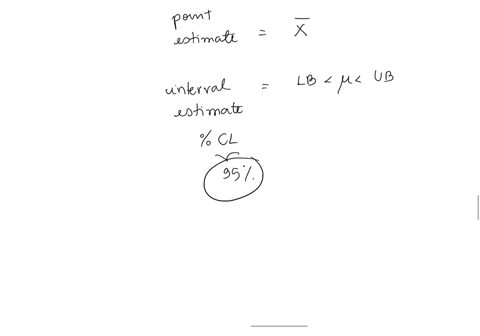 point
estimate = X̅
interval = LB < μ < UB
estimate
% CL
95%.